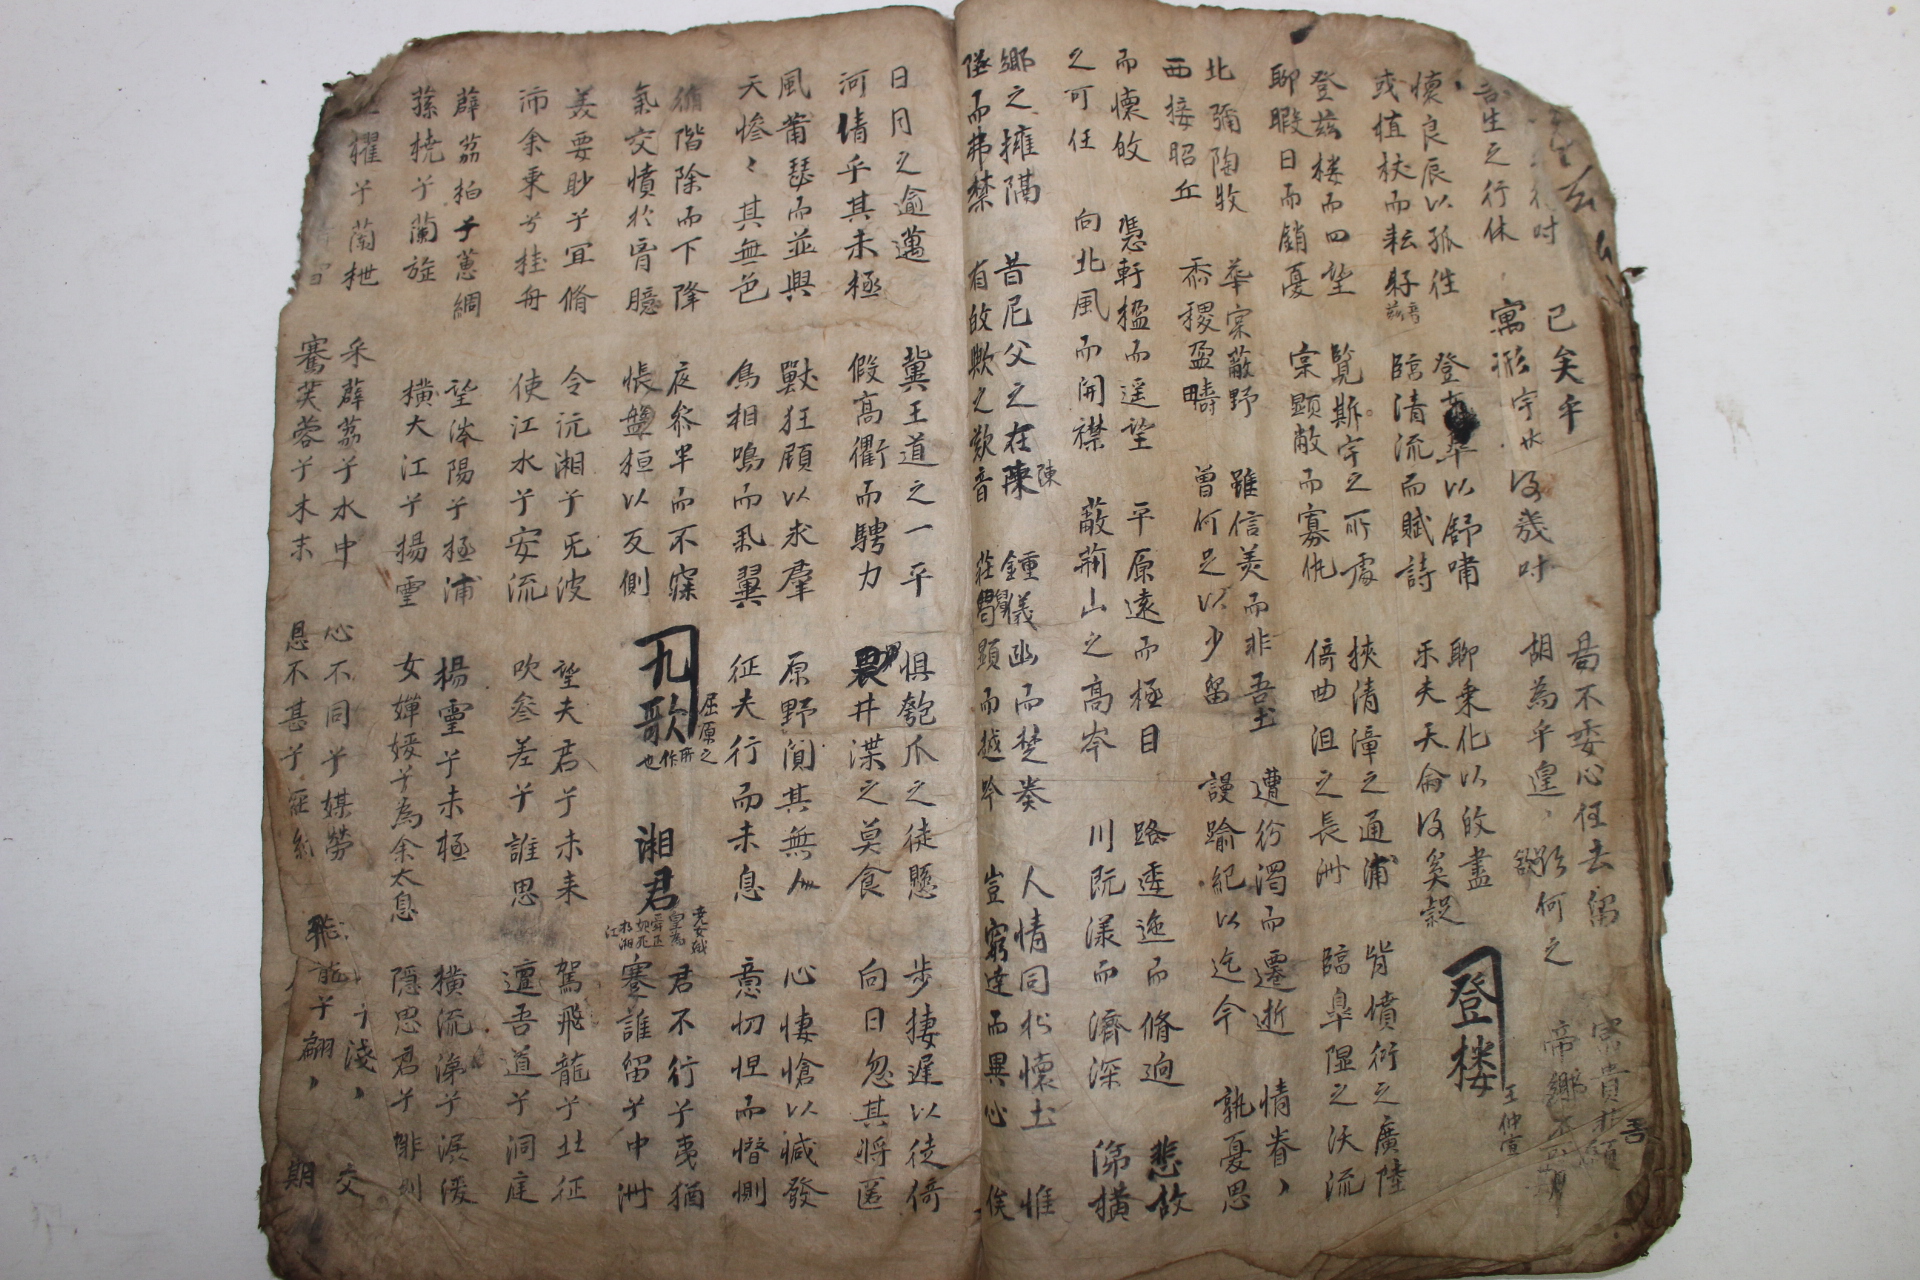 吾生之行休
已矣乎
寓形宇內没幾時
曷不委心任去留
胡為乎遑、欲何之
富貴非吾願
帝鄉不可期
懷良辰以孤往
或植杖而耘耔
登東皐以舒嘯
臨清流而賦詩
聊乗化以皈盡
樂夫天命没奚疑
登楼
王仲宣
登茲楼而四望
聊暇日而銷憂
覽斯宇之所處
寔顕敞而寡仇
挾清漳之通浦
倚曲沮之長洲
背墳衍之廣陸
臨皐隰之沃流
北彌陶牧
西接昭丘
華寔蔽野
黍稷盈疇
雖信美而非吾土
曾何足以少留
遭紛濁而遷逝
謾踰紀以迄今
情眷、
孰憂思
而懷皈
之可任
憑軒楹而遥望
向北風而開襟
平原遠而極目
蔽荊山之高岑
路逶迤而脩逈
川既漾而濟深
悲故
涕橫
鄉之擁隔
墜而弗禁
昔尼父之在陳
有皈歟之歎音
鍾儀幽而楚奏
莊舄顕而越吟
人情同於懷土
豈窮達而異心
惟
俟
日月之逾邁
河清乎其未極
冀王道之一平
假高衢而騁力
惧匏爪之徒懸
畏井渫之莫食
步棲遲以徒倚
向日忽其將匿
風蕭瑟而並興
天慘、其無色
獸狂顧以求羣
鳥相鳴而㪯翼
原野闃其無人
征夫行而未息
心悽愴以慽發
意忉怛而憯惻
循階除而下降
氣交憤於胷臆
夜叅半而不寐
悵盤桓以反側
九歌
屈原之所作也
湘君
君不行兮夷猶
蹇誰留兮中洲
美要眇兮宜脩
沛余乗兮桂舟
令沅湘兮无波
使江水兮安流
望夫君兮未来
吹参差兮誰思
駕飛龍兮北征
邅吾道兮洞庭
薜荔柏兮蕙綢
蓀橈兮蘭旌
望涔陽兮極浦
橫大江兮揚靈
揚靈兮未極
女嬋媛兮為余太息
橫流涕兮潺湲
隱思君兮悱惻
櫂兮蘭枻
采薜荔兮水中
搴芙蓉兮木末
心不同兮媒勞
恩不甚兮
兮淺、
飛龍兮翩、
交
期